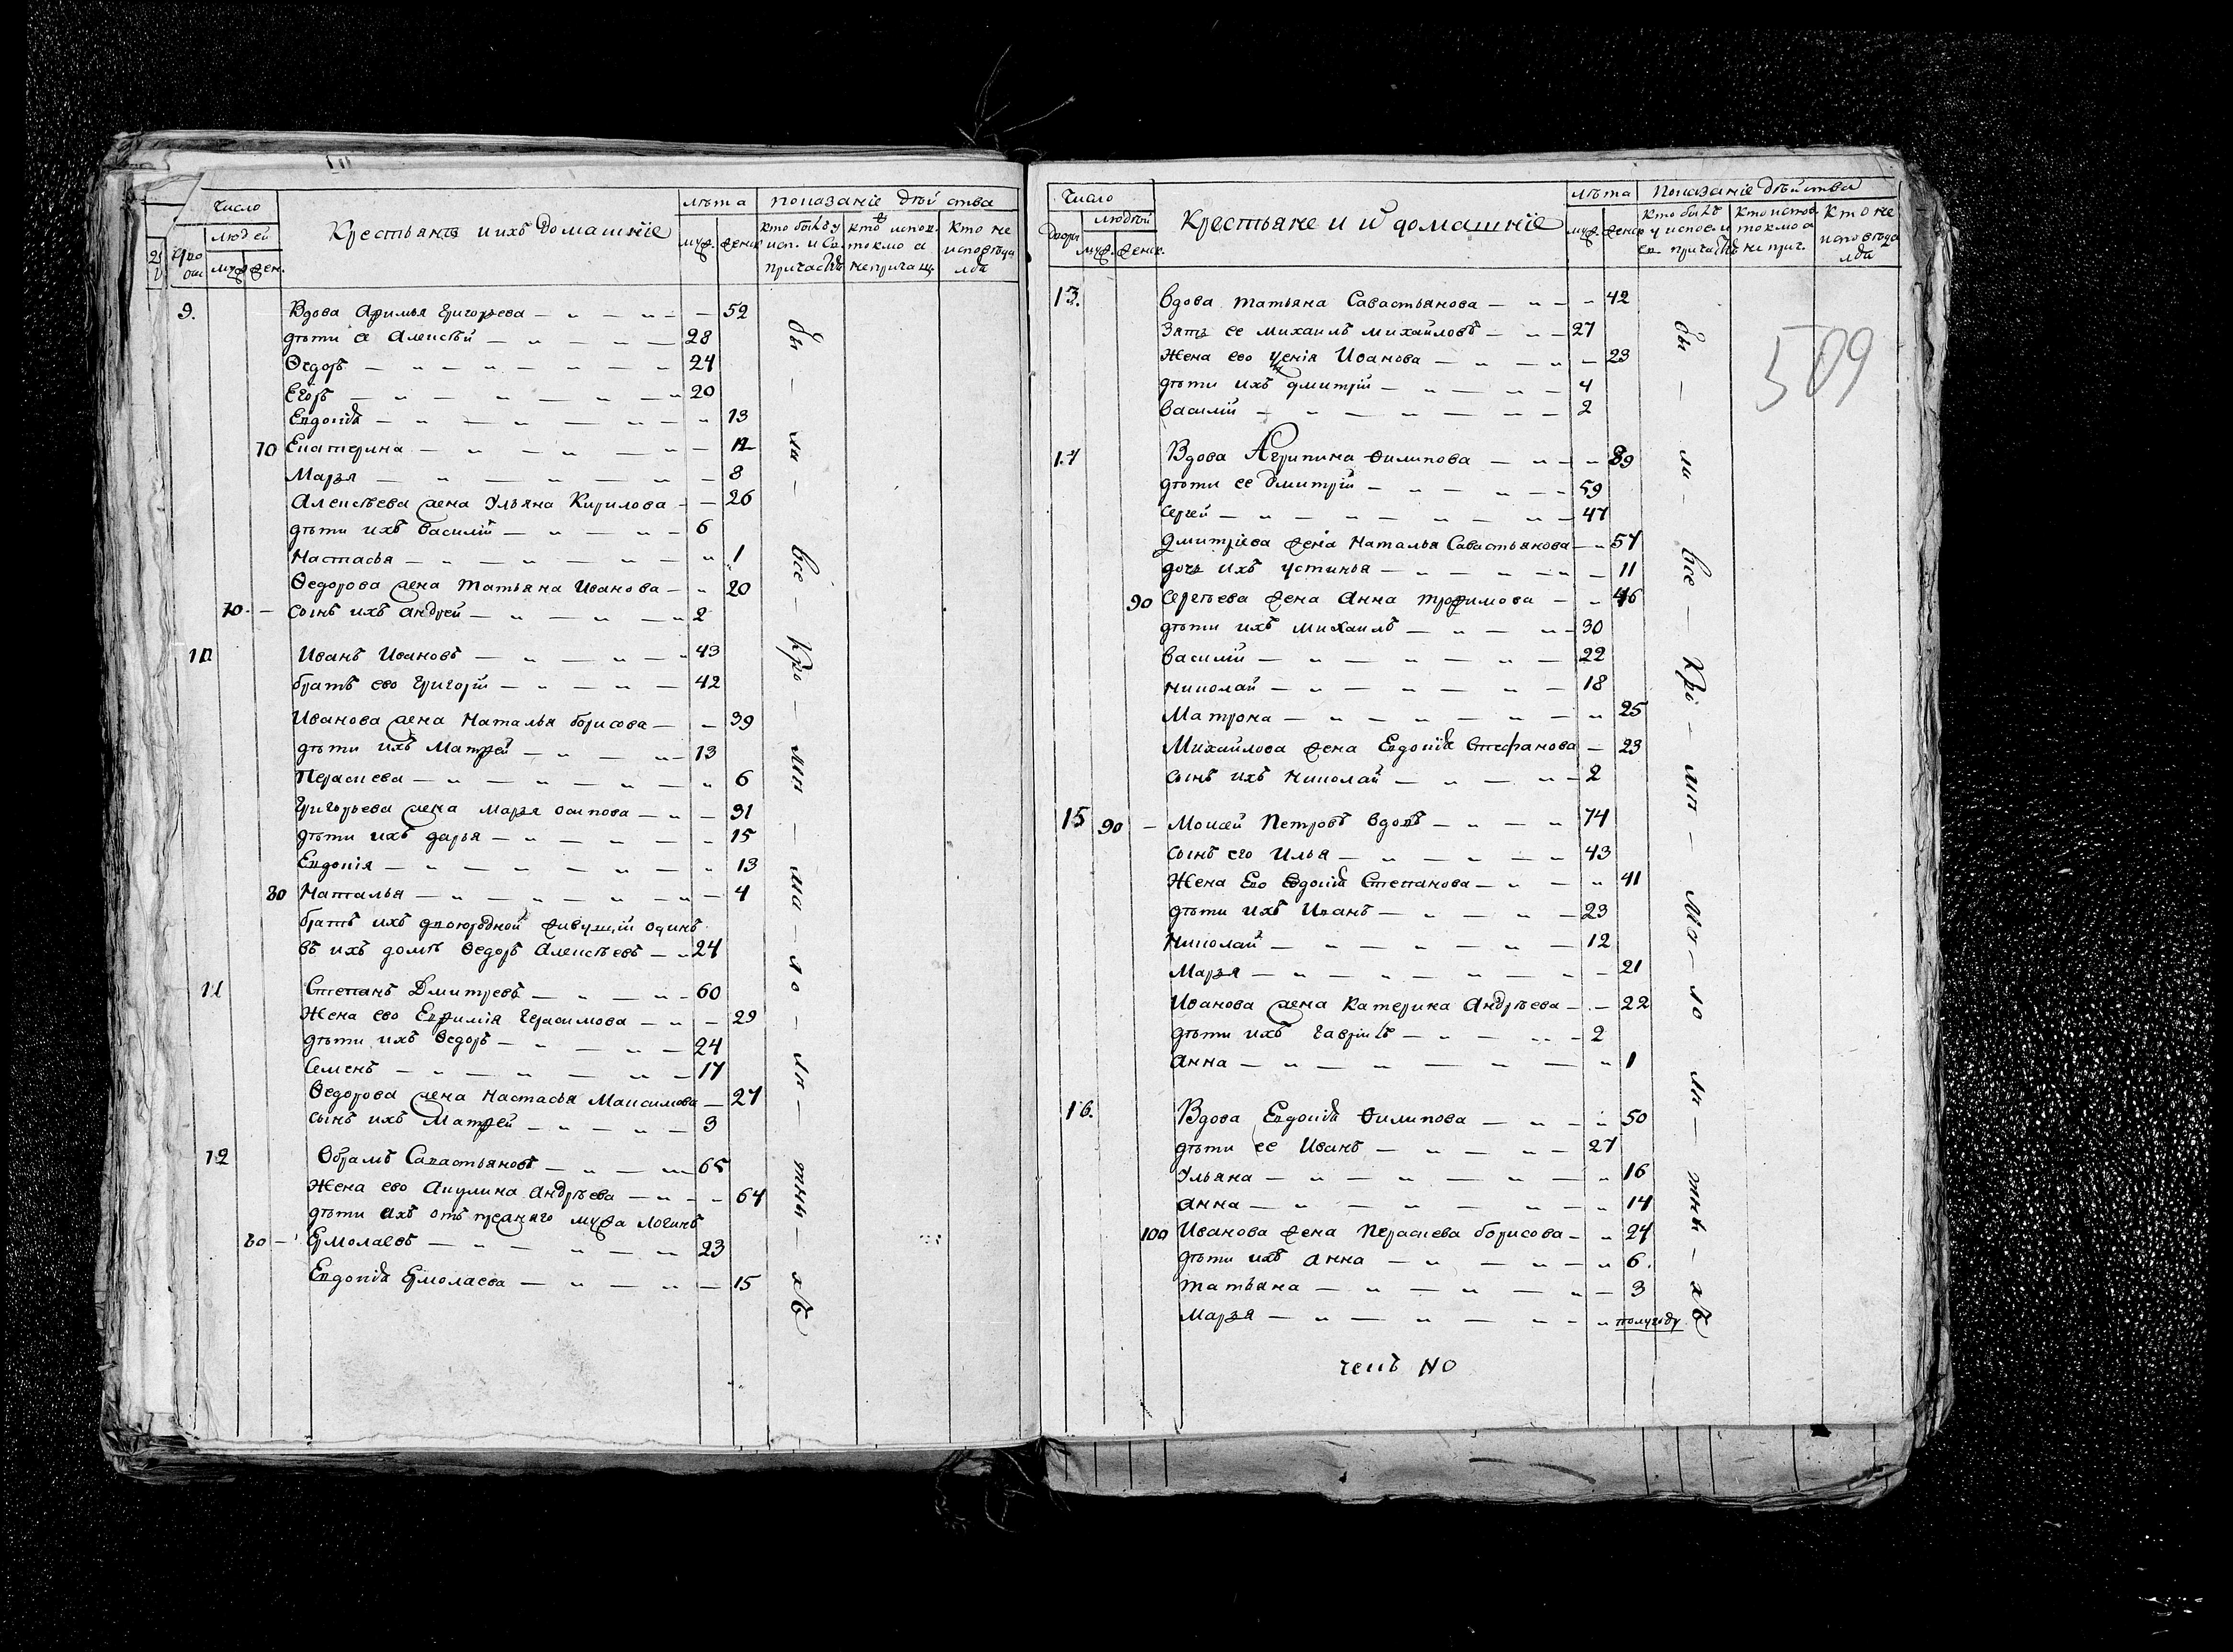 Число
людей
муж. жен.
Крестьянѣ и ихъ домашнїе
лѣта
муж. женск.
показанїе дѣй ства
кто былъ у исп. и св. причастія
кто испов. токмо а непричащ.
кто не исповѣда лся
9. Вдова Афимья Григорьева — 52
дѣти а Алексѣй — 28
Ѳедоръ — 24
Егоръ — 20
Евдокія — 13
70 Екатерина — 12
Марѳя — 8
Алексѣева жена Ульяна Кирилова — 26
дѣти ихъ Василїй — 6
Настасья — 1
Ѳедорова жена Татьяна Иванова — 20
70 — сынъ ихъ андрей — 2
10 Иванъ Ивановъ — 43
братъ ево Григорїй — 42
Иванова жена Наталья борисова — 39
дѣти ихъ Матфей — 13
Параскева — 6
Григорьева жена Марѳя осипова — 31
дѣти ихъ дарья — 15
Евдокїя — 13
80 Наталья — 4
братъ ихъ двоюродной живущїй одинъ
въ ихъ домѣ Ѳедоръ Алексѣевъ — 24
11 Степанъ Дмитревъ — 60
Жена ево Евфимїя Герасимова — 29
дѣти ихъ Ѳедоръ — 24
Семенъ — 17
Ѳедорова жена Настасья Максимова — 27
сынъ ихъ Матфей — 3
12 Обрамъ Савастьяновъ — 65
Жена ево Акулина андрѣева — 64
дѣти ихъ отъ прежняго мужа Логинъ
80 — Ермолаевъ — 23
Евдокія Ермолаева — 15
бы — ли — все — кро — мп — ма — ло — лѣ — тнѣ — хъ
Число
людѣй
дворы муж. женск.
Крестьяне и и домашнїе
лѣта
муж. женск
Показанїе дѣйства
кто былъ у испов. и св. причастія
кто испов. токмо а не прич.
кто не исповѣда лся
509
13. вдова татьяна Савастьянова — 42
Зять ее михаилъ михайловъ — 27
Жена ево ксенїя Иванова — 23
дѣти ихъ дмитрїй — 4
василїй — 2
14 Вдова Агрипина Филипова — 89
дѣти ее дмитрїй — 59
сергей — 47
дмитрїева жена Наталья Савастьянова — 57
дочь ихъ устинья — 11
90 сергѣева жена анна трофимова — 46
дѣти ихъ михаилъ — 30
василїй — 22
николай — 18
Матрона — 25
Михайлова жена Евдокія Стефанова — 23
сынъ ихъ николай — 2
15 90 — Моисей Петровъ вдовъ — 74
сынъ его Илья — 43
Жена Ево Евдокія Степанова — 41
дѣти ихъ Иванъ — 23
Николай — 12
Марѳя — 21
Иванова жена Катерина Андрѣева — 22
дѣти ихъ гаврилъ — 2
анна — 1
16. Вдова Евдокія Филипова — 50
дѣти ее Иванъ — 27
Ульяна — 16
анна — 14
100 Иванова жена Параскева борисова — 24
дѣти ихъ анна — 6.
татьяна — 3
Марѳя — полугоду
бы — ли — все — кро — мп — мо — ло — лѣ — тнѣ — хъ